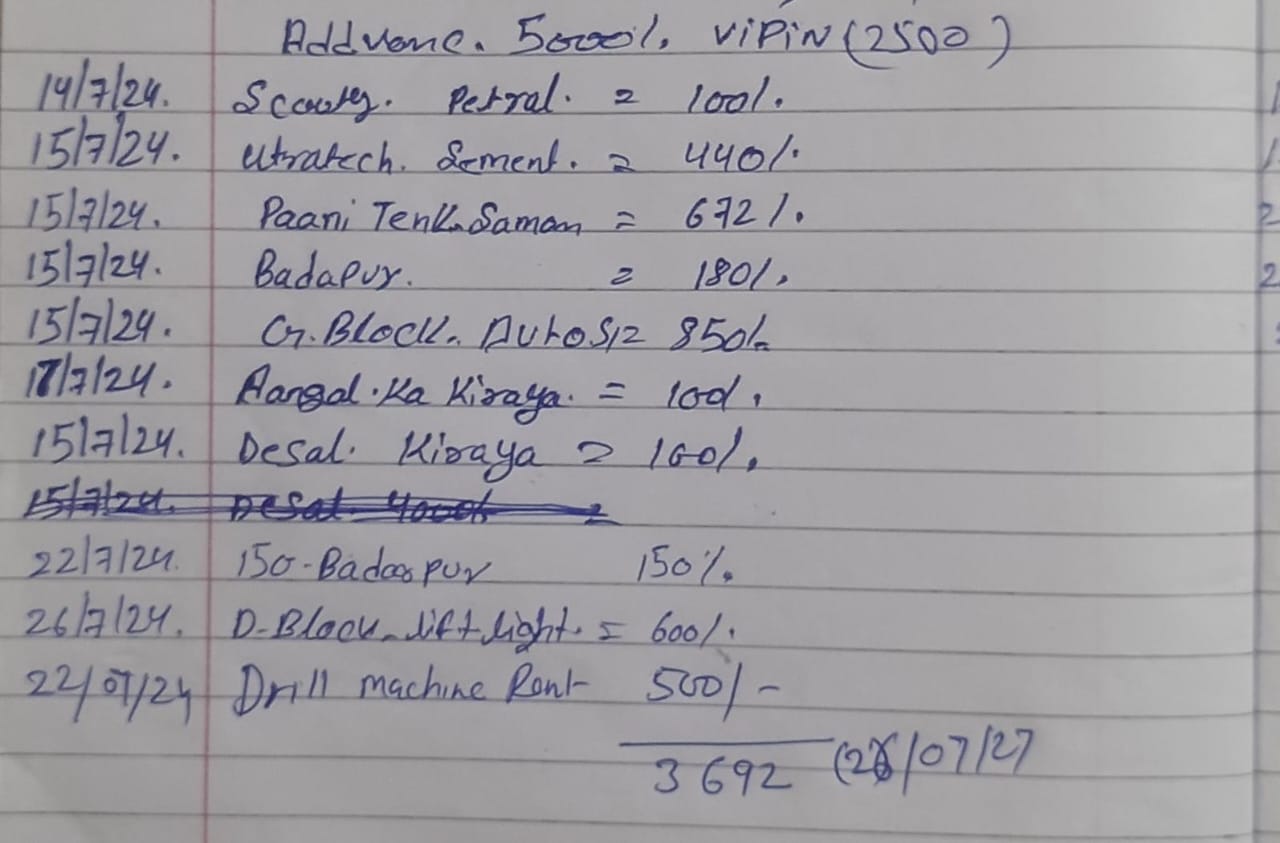 Addvanc. 5000%. ViPiN (2500)
14/7/24. Scooty. Petral. = 100/.
15/7/24. Utratech. Sement. = 440/.
15/7/24. Paani Tenk. Saman = 672/.
15/7/24. Badapur. = 180/.
15/7/24. G.Block. Auto = 850/.
17/7/24. Aangal.Ka Kiraya. = 100/.
15/7/24. Desal. Kiraya = 100/.
15/7/24. Desal. 4000/. =
22/7/24. 150-Badarpur 150%.
26/7/24. D-Block lift light. = 600/.
22/07/24 Drill machine Rent 500/-
3692 (26/07/27